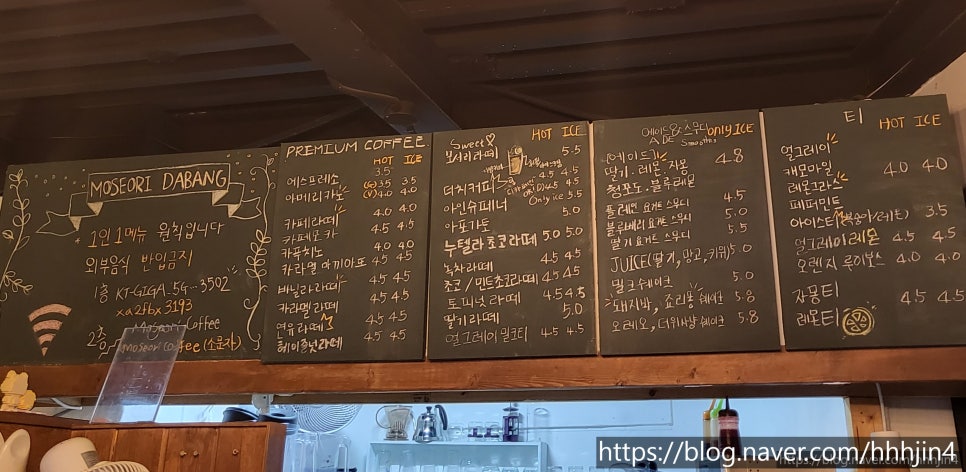 MOSEORI DABANG
1인 1메뉴 원칙입니다
외부음식 반입금지
1층 KT-GIGA_5G-3502
xa2fbx3193
2층
Moseori Coffee
moseori coffee (소문자)
PREMIUM COFFEE
HOT ICE
에스프레소 3.5
아메리카노 3.5 3.5
4.0 4.0
카페라떼 4.0 4.0
카페모카 4.5 4.5
카푸치노 4.0 4.0
카라멜 마끼아또 4.5 4.5
바닐라라떼 4.5 4.5
카라멜라떼 4.5 4.5
연유라떼 4.5 4.5
헤이즐넛라떼 4.5 4.5
Sweet HOT ICE
모서리라떼 5.5
더치커피 4.5 4.5
아인슈페너 Only ice 5.5
아포가토 5.0
누텔라쵸코라떼 5.0 5.0
녹차라떼 4.5 4.5
초코/민트초코라떼 4.5 4.5
토피넛라떼 4.5 4.5
딸기라떼 5.0
얼그레이 밀크티 4.5 4.5
에이드 & 스무디 only ICE
ADE Smoothie
[에이드]
딸기. 레몬. 자몽 4.8
청포도. 블루레몬
플레인 요거트 스무디 4.5
블루베리 요거트 스무디 5.0
딸기 요거트 스무디 5.5
JUICE(딸기, 망고, 키위) 5.0
밀크쉐이크 5.0
돼지바, 죠리퐁 쉐이크 5.8
오레오, 더위사냥 쉐이크 5.8
티 HOT ICE
얼그레이
캐모마일 4.0 4.0
레몬그라스
페퍼민트
아이스티(복숭아/레몬) 3.5
얼그레이레몬 4.5 4.5
오렌지 루이보스 4.0 4.0
자몽티 4.5 4.5
레몬티
https://blog.naver.com/hhhjin4